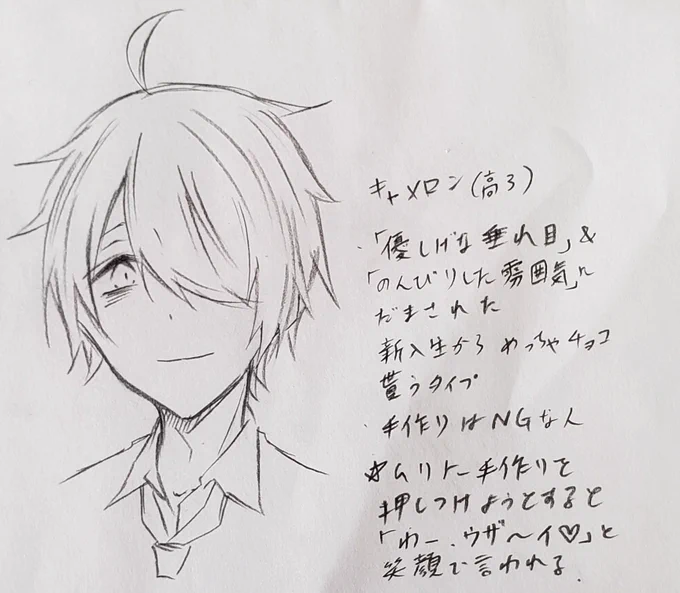 キャメロン(高3)
・「優しげな垂れ目」&
「のんびりした雰囲気」に
だまされた
新入生から めっちゃチョコ
貰うタイプ
・手作りはNGな人
手作りを
押しつけようとすると
「わー、ウザ〜イ♡」と
笑顔で言われる.